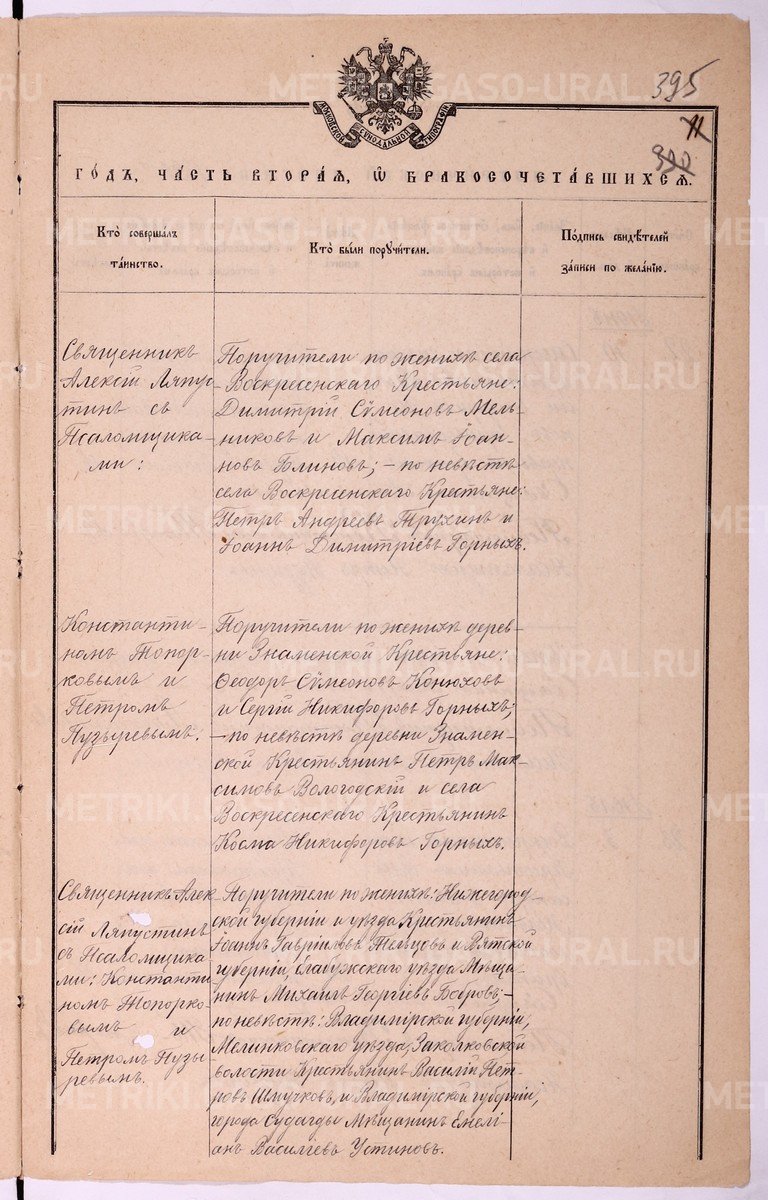 395
11
990
МОСКОВСКОЙ СѴНОДАЛЬНОЙ ТИПОГРАФІИ
ГОДЪ, ЧАСТЬ ВТОРАѦ, Ѡ БРАКОСОЧЕТАВШИХСѦ.
Кто совершалъ
таинство.
Кто были поручители.
Подпись свидѣтелей
записи по желанію.
Священникъ
Алексій Ляпус-
тинъ съ
Псаломщика-
ми:
Поручители по женихѣ села
Воскресенскаго Крестьяне:
Димитрій Сѵмеоновъ Мель-
никовъ и Максимъ Іоан-
новъ Блиновъ; – по невѣстѣ
села Воскресенскаго Крестьяне:
Петръ Андреевъ Трухинъ и
Іоаннъ Димитріевъ Горныхъ.
Константи-
номъ Топор-
ковымъ и
Петромъ
Пузыревымъ.
Поручители по женихѣ дерев-
ни Знаменской Крестьяне:
Ѳеодоръ Сѵмеоновъ Конюховъ
и Сергій Никифоровъ Горныхъ;
– по невѣстѣ деревни Знамен-
ской Крестьянинъ Петръ Мак-
симовъ Вологодскій и села
Воскресенскаго Крестьянинъ
Косма Никифоровъ Горныхъ.
Священникъ Алек-
сій Ляпустинъ
съ Псаломщика-
ми: Константи-
номъ Топорко-
вымъ и
Петромъ Пузы-
ревымъ.
Поручители по женихѣ: Нижегород-
ской губерніи и уѣзда Крестьянинъ
Іоаннъ Гавріиловъ и Вятской
губерніи, Елабужскаго уѣзда Мѣща-
нинъ Михаилъ Георгіевъ Бобровъ; –
по невѣстѣ: Владимірской губерніи,
Меленковскаго уѣзда, Заколковской
волости Крестьянинъ Василій Пет-
ровъ Шмучковъ, и Владимірской губерніи,
города Судогды Мѣщанинъ Емелі-
анъ Василіевъ Устиновъ.
METRIKI.GASO-URAL.RU